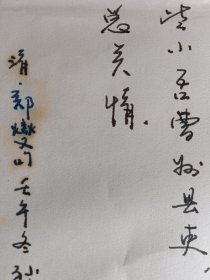 些小吾曹州县吏
总关情、
清·郑燮句 壬午冬